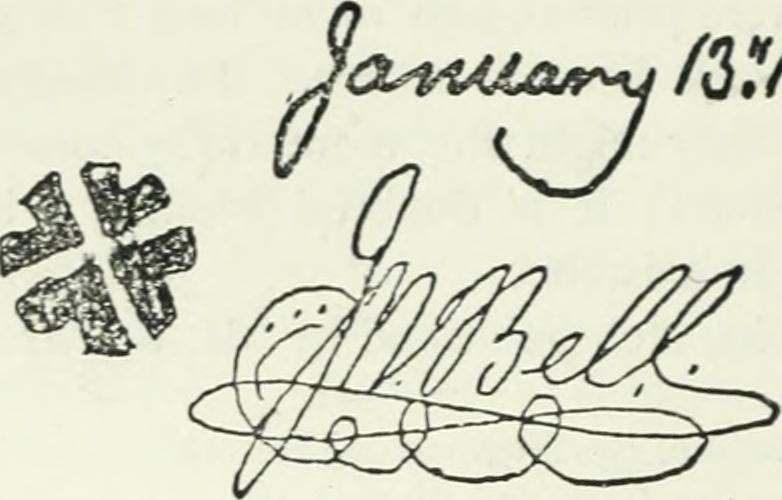 January 13."1
J.M. Bell.